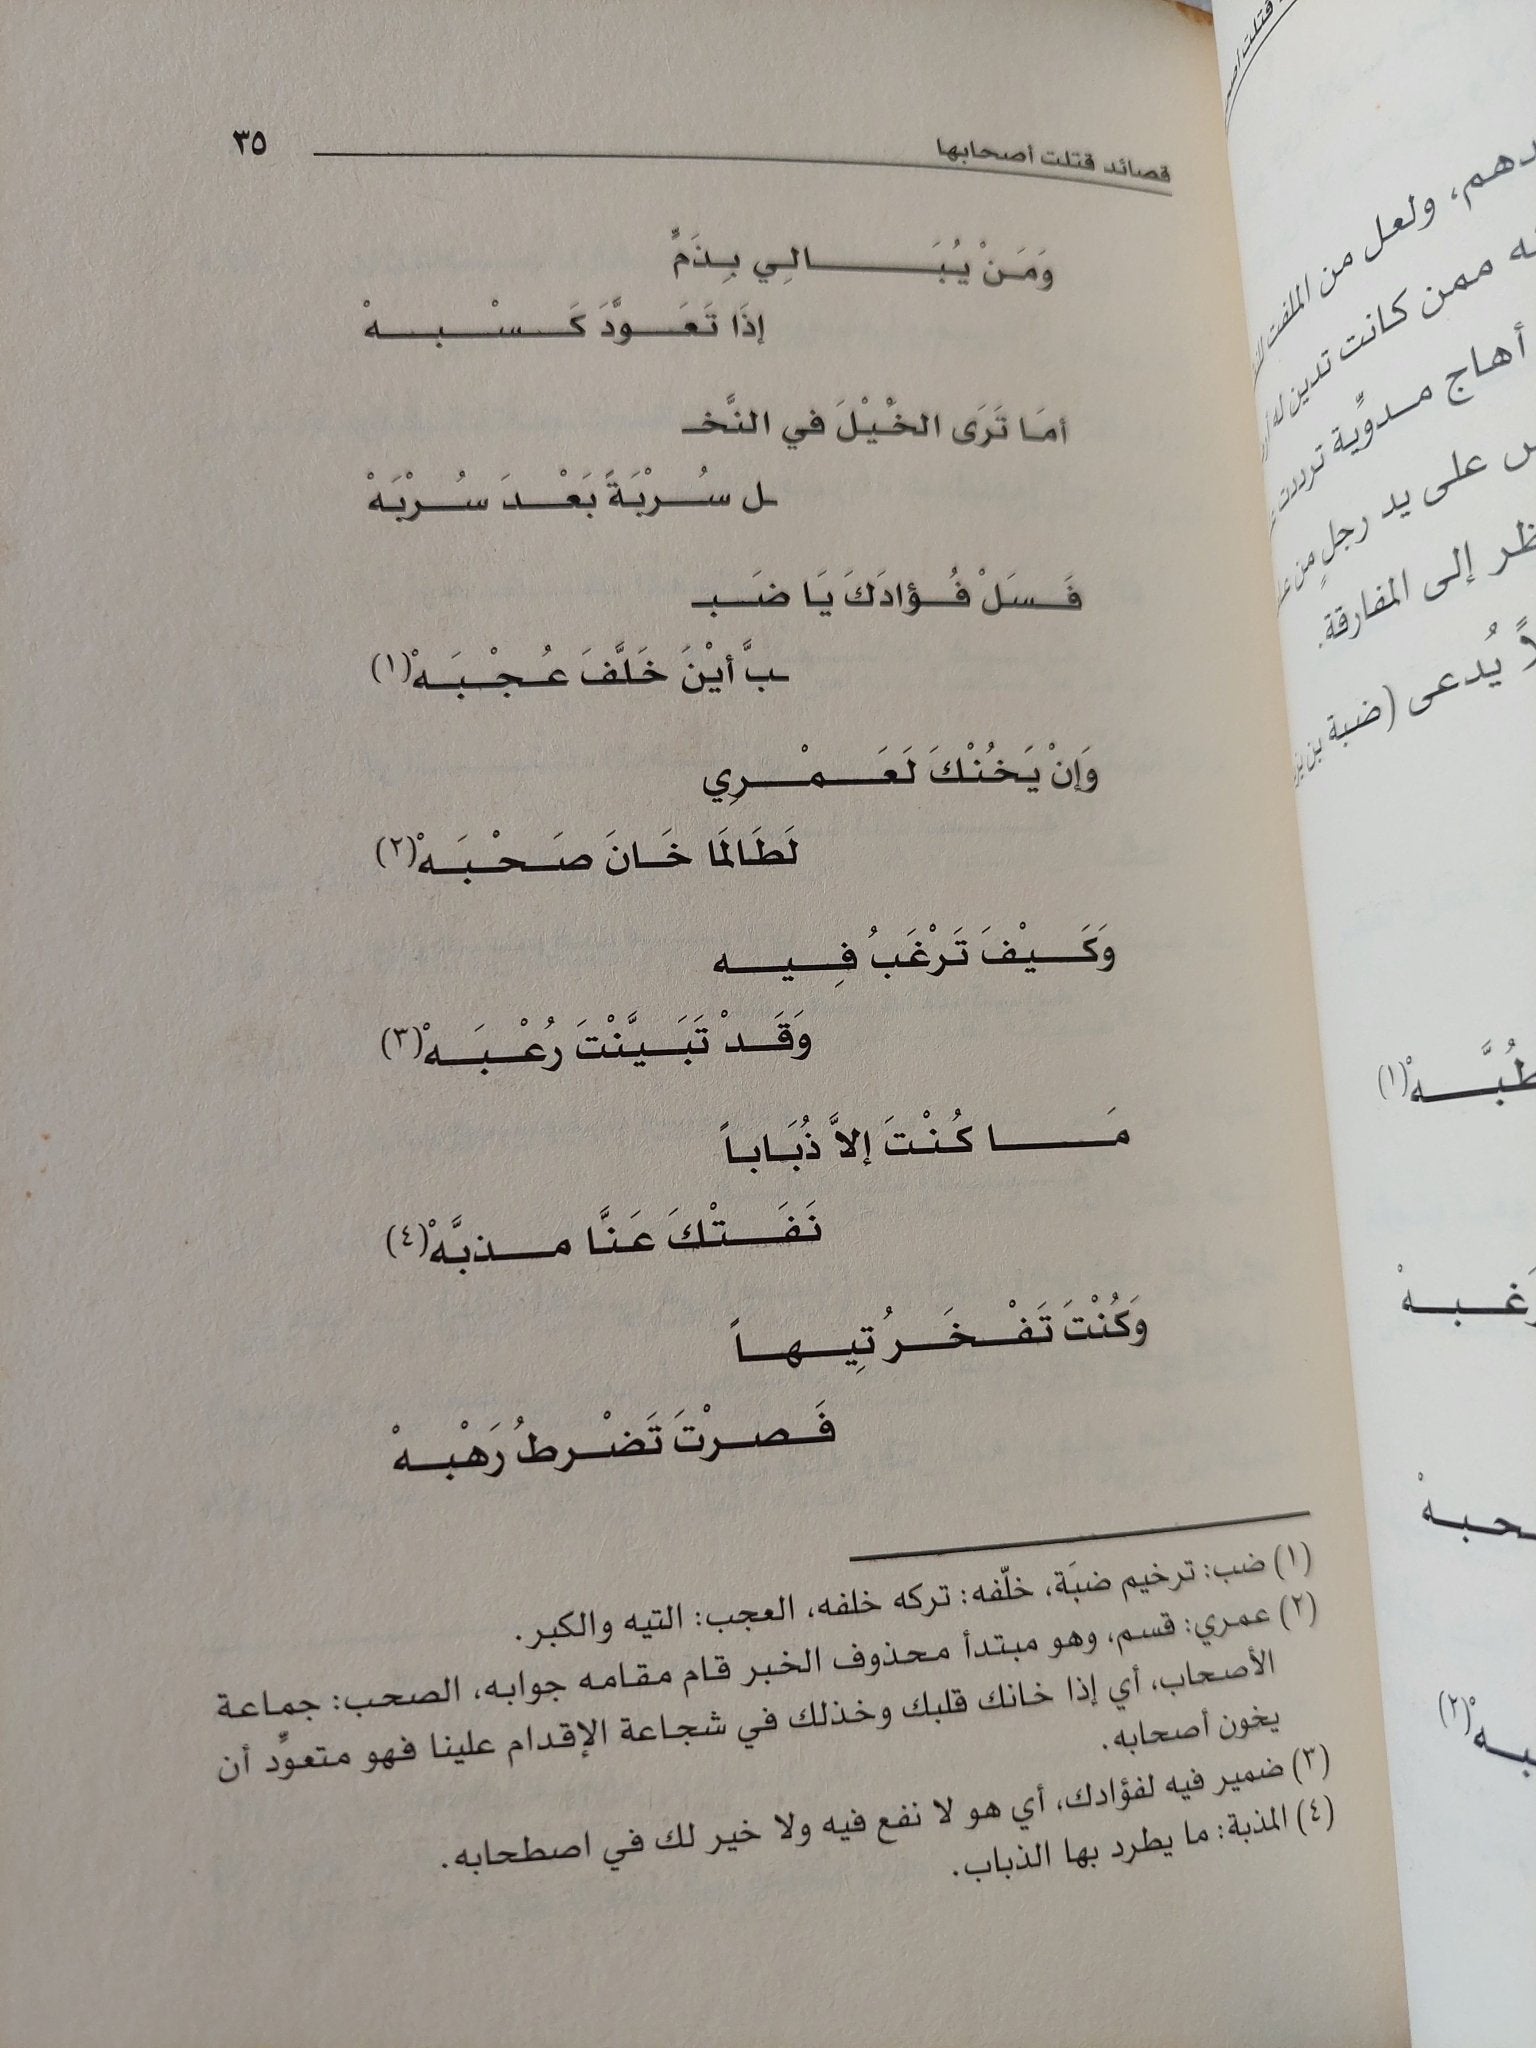 قصائد قتلت أصحابها ٣٥
وَمَنْ يُبَالِي بِذَمٍّ
إذَا تَعَوَّدَ كَسْبِهْ
أمَا تَرَى الخْيْلَ في النَّخـ
ـل سُرْبَةً بَعْدَ سُرْبَهْ
فَسَلْ فُؤادَكَ يَا ضَبـ
ـبَّ أيْنَ خَلَّفَ عُجْبَهْ(١)
وَإنْ يَخُنْكَ لَعَمْرِي
لَطَالَمَا خَانَ صَحْبَهْ(٢)
وَكَيْفَ تَرْغَبُ فِيه
وَقَدْ تَبَيَّنْتَ رُعْبَهْ(٣)
مَا كُنْتَ إلاَّ ذُبَاباً
نَفَتْكَ عَنَّا مذبَّهْ(٤)
وَكُنْتَ تَفْخَرُ تِيهاً
فَصرْتَ تَضْرطُ رَهْبهْ
(١) ضب: ترخيم ضبَة، خلّفه: تركه خلفه، العجب: التيه والكبر.
(٢) عمري: قسم، وهو مبتدأ محذوف الخبر قام مقامه جوابه، الصحب: جماعة
الأصحاب، أي إذا خانك قلبك وخذلك في شجاعة الإقدام علينا فهو متعوِّد أن
يخون أصحابه.
(٣) ضمير فيه لفؤادك، أي هو لا نفع فيه ولا خير لك في اصطحابه.
(٤) المذبة: ما يطرد بها الذباب.
دهم، ولعل من الملفت
ممن كانت تدين له
أهاج مدوِّية ترددت
على يد رجلٍ من
إلى المفارقة.
يُدعى (ضبة بن
(١)
(٢)